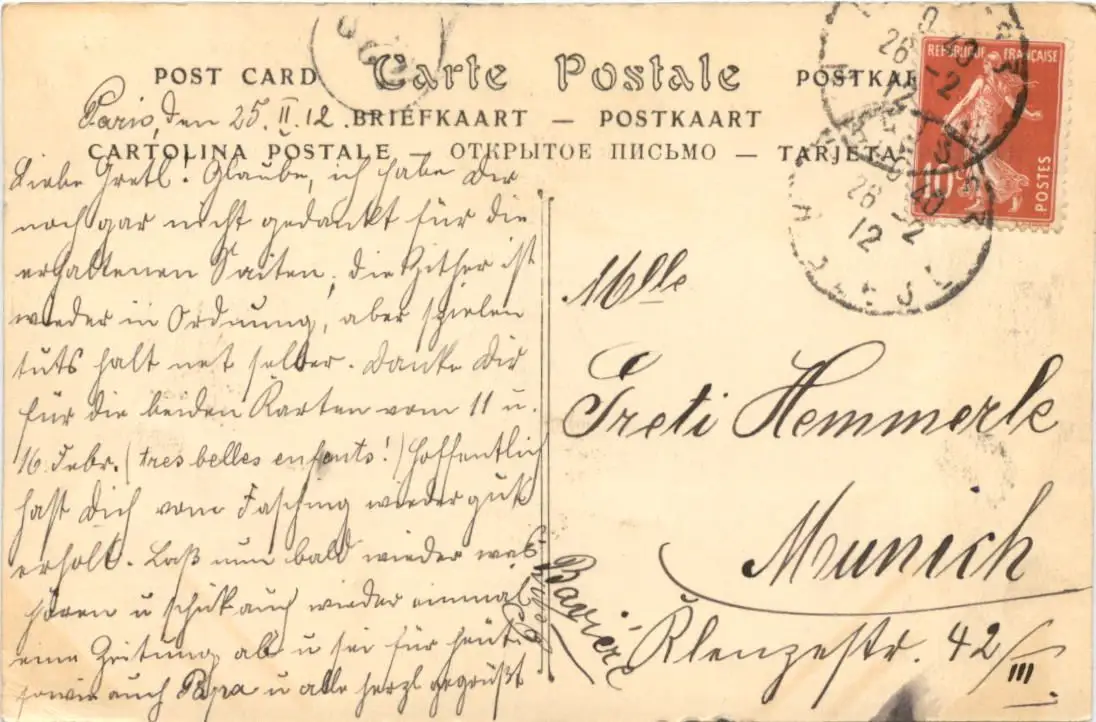 POST CARD Carte Postale POSTKAR
Paris, den 25. II. 12. BRIEFKAART — POSTKAART
CARTOLINA POSTALE — ОТКРЫТОЕ ПИСЬМО — TARJETA
REPUBLIQUE FRANÇAISE
10
POSTES
26 -2
12
26 -2
12
Liebe Gretl! Glaube, ich habe Dir
noch gar nicht gedankt für die
erhaltenen Saiten; die Zither ist
wieder in Ordnung, aber spielen
tuts halt net selber. Danke Dir
für die beiden Karten vom 11 u.
16. Febr. (tres belles enfants!) Hoffentlich
hast Dich vom Fasching wieder gut
erholt. Laß nun bald wieder was
hören u schick auch wieder einmal
eine Zeitung ab u sei für heute
sowie auch Papa u alle herzl gegrüßt
Mlle
Greti Hemmerle
Munich
Bavière
Klenzestr. 42/III.